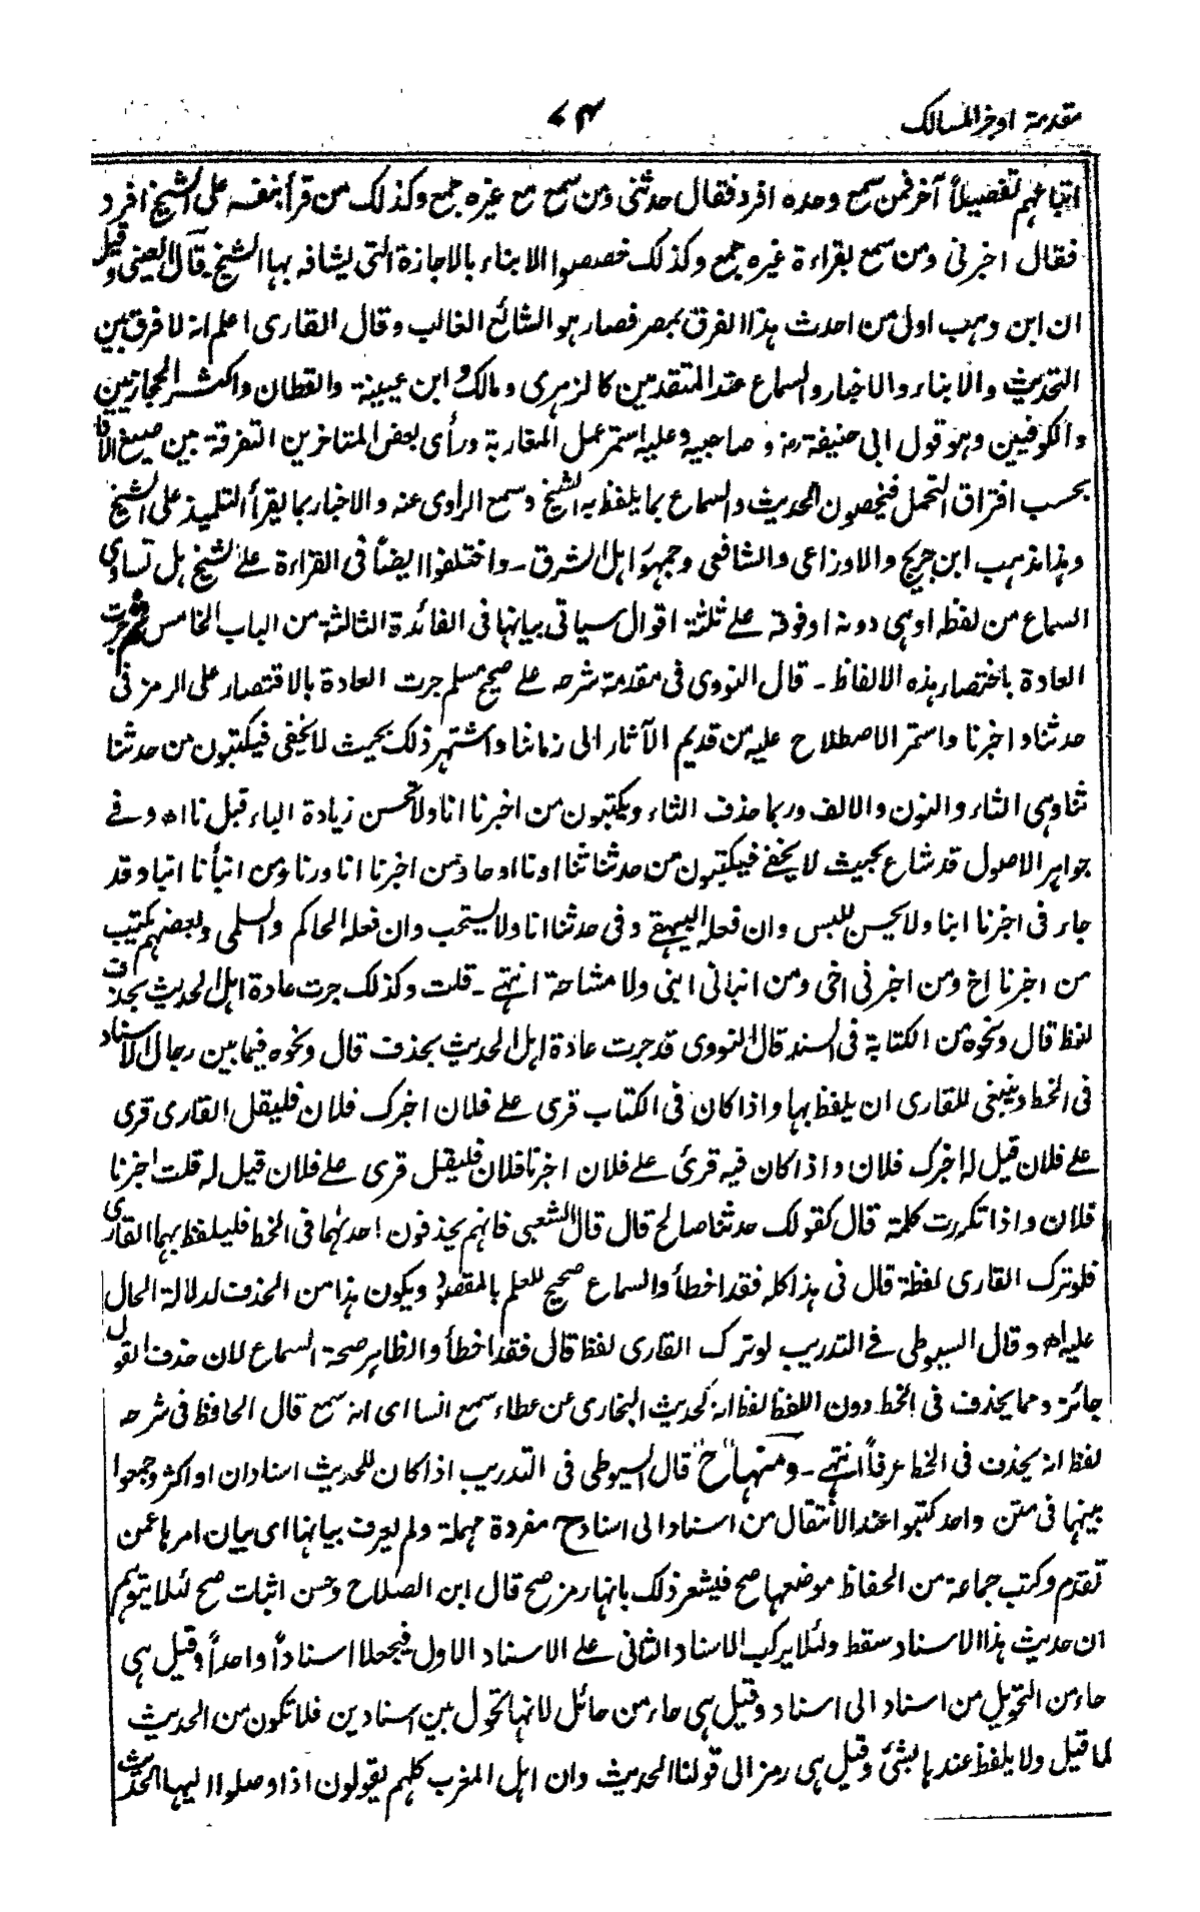 مقدمة اوجز المسالك
٧٤
اتباعهم تفصيلاً آخر فمن سمع وحده افرد فقال حدثنى ومن سمع مع غيره جمع وكذلك من قرأ بنفسه على الشيخ افرد
فقال اخبرنى ومن سمع بقراءة غيره جمع وكذلك خصصوا الانباء بالاجازة التى يشافه بها الشيخ قال العينى وقيل
ان ابن وهب اول من احدث هذا الفرق بمصر فصار هو الشائع الغالب وقال القارى اعلم انه لا فرق بين
التحديث والانباء والاخبار والسماع عند المتقدمين كالزهرى ومالك و ابن عيينة والقطان واكثر الحجازيين
والكوفيين وهو قول ابى حنيفة رح و صاحبيه وعليه استمر عمل المغاربة ورأى بعض المتاخرين التفرقة بين صيغ الا
بحسب افتراق التحمل فيخصون التحديث والسماع بما يلفظ به الشيخ وسمع الراوى عنه والاخبار بما يقرأ التلميذ على الشيخ
وهذا مذهب ابن جريج والاوزاعى والشافعى وجمهور اهل الشرق ـ واختلفوا ايضاً فى القراءة على الشيخ هل تساوى
السماع من لفظه او هى دونه او فوقه على ثلثة اقوال سياتى بيانها فى الفائدة الثالثة من الباب الخامس ثم جرت
العادة باختصار هذه الالفاظ ـ قال النووى فى مقدمة شرحه على صحيح مسلم جرت العادة بالاقتصار على الرمز فى
حدثنا و اخبرنا واستمر الاصطلاح عليه من قديم الآثار الى زماننا واشتهر ذلك بحيث لا يخفى فيكتبون من حدثنا
ثنا وهى الثاء والنون والالف وربما حذف الثاء ويكتبون من اخبرنا انا ولا تحسن زيادة الباء قبل نا اھ وفى
جواهر الاصول قد شاع بحيث لا يخفى فيكتبون من حدثنا ثنا او نا او حا ومن اخبرنا انا و رنا ومن انبأنا انبا وقد
جاء فى اخبرنا ابنا ولا يحسن للبس وان فعله البيهقى وفى حدثنا انا ولا يستحب وان فعله الحاكم والسلمى وبعضهم يكتب
من اخبرنا اخ ومن اخبرنى اخى ومن انبانى انبنى ولا مشاحة انتهى ـ قلت وكذلك جرت عادة اهل الحديث بحذف
لفظ قال ونحوه من الكتابة فى السند قال النووى قد جرت عادة اهل الحديث بحذف قال ونحوه فيما بين رجال الاسناد
فى الخط وينبغى للقارى ان يلفظ بها واذا كان فى الكتاب قرى على فلان اخبرك فلان فليقل القارى قرى
على فلان قيل له اخبرك فلان واذا كان فيه قرئ على فلان اخبرنا فلان فليقل قرى على فلان قيل له قلت اخبرنا
فلان واذا تكررت كلمة قال كقولك حدثنا صالح قال قال الشعبى فانهم يحذفون احدٰهما فى الخط فليلفظ بهما القارى
فلو ترك القارى لفظة قال فى هذا كله فقد اخطأ والسماع صحيح للعلم بالمقصود ويكون هذا من الحذف لدلالة الحال
عليه اھ وقال السيوطى فى التدريب لو ترك القارى لفظ قال فقد اخطأ والظاهر صحة السماع لان حذف القول
جائز ومما يحذف فى الخط دون اللفظ لفظ انه كحديث البخارى عن عطاء سمع انسا اى انه سمع قال الحافظ فى شرحه
لفظ انه يحذف فى الخط عرفاً انتهى ـ ومنها "ح" قال السيوطى فى التدريب اذا كان للحديث اسنادان او اكثر وجمعوا
بينها فى متن واحد كتبوا عند الانتقال من اسناد الى اسناد ح مفردة مهملة ولم يعرف بيانها اى بيان امرها عمن
تقدم وكتب جماعة من الحفاظ موضعها صح فيشعر ذلك بانها رمز صح قال ابن الصلاح وحسن اثبات صح لئلا يتوهم
ان حديث هذا الاسناد سقط ولئلا يركب الاسناد الثانى على الاسناد الاول فيجعلا اسناداً واحداً وقيل هى
حاء من التحويل من اسناد الى اسناد وقيل هى حاء من حائل لانها تحول بين اسنادين فلا تكون من الحديث
لما قيل ولا يلفظ عندها بشئ وقيل هى رمز الى قولنا الحديث وان اهل المغرب كلهم يقولون اذا وصلوا اليها الحديث